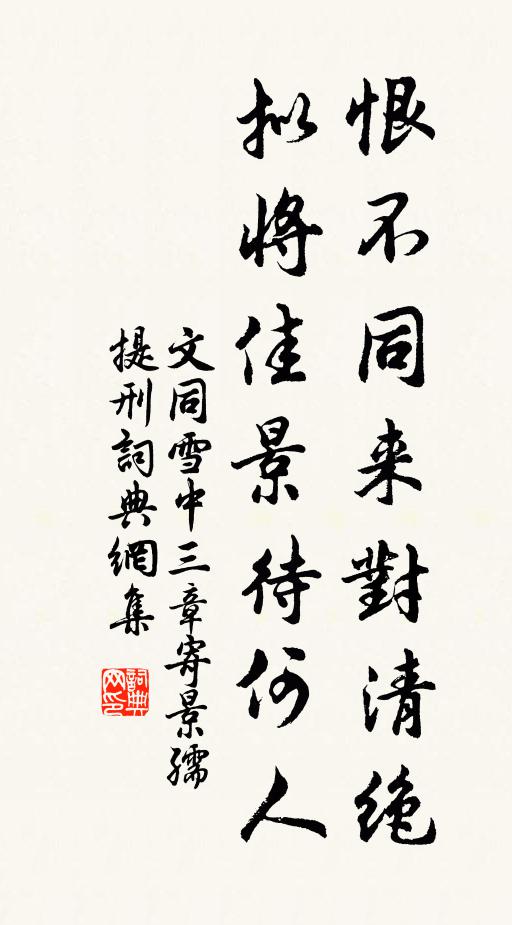 恨不同来對清絶
拟將佳景待何人
文同雪中三章寄景孺
提刑詞典網集
詞典网印